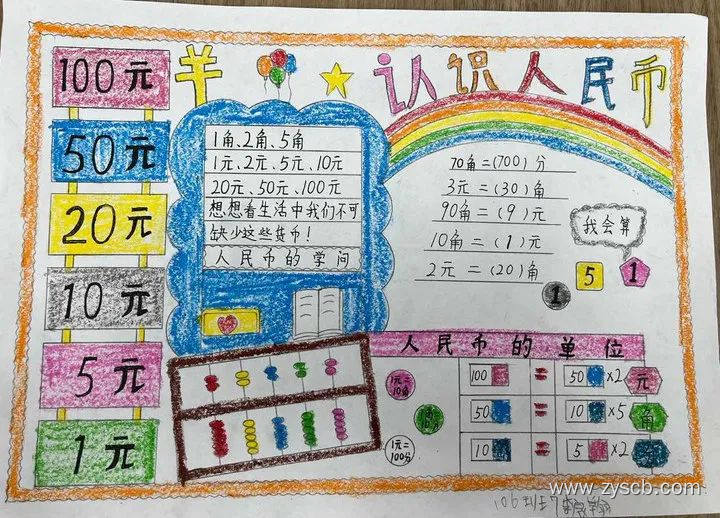 ¥
认识人民币
100元
50元
20元
10元
5元
1元
1角、2角、5角
1元、2元、5元、10元
20元、50元、100元
想想看生活中我们不可
缺少这些货币!
人民币的学问
70角=(700)分
3元=(30)角
90角=(9)元
10角=(1)元
2元=(20)角
我会算
1
5
1
人民币的单位
1元=
10角
1元=
100分
100 = 50 ×2
50 = 10 ×5
10 = 5 ×2
元
角
www.zyscb.com